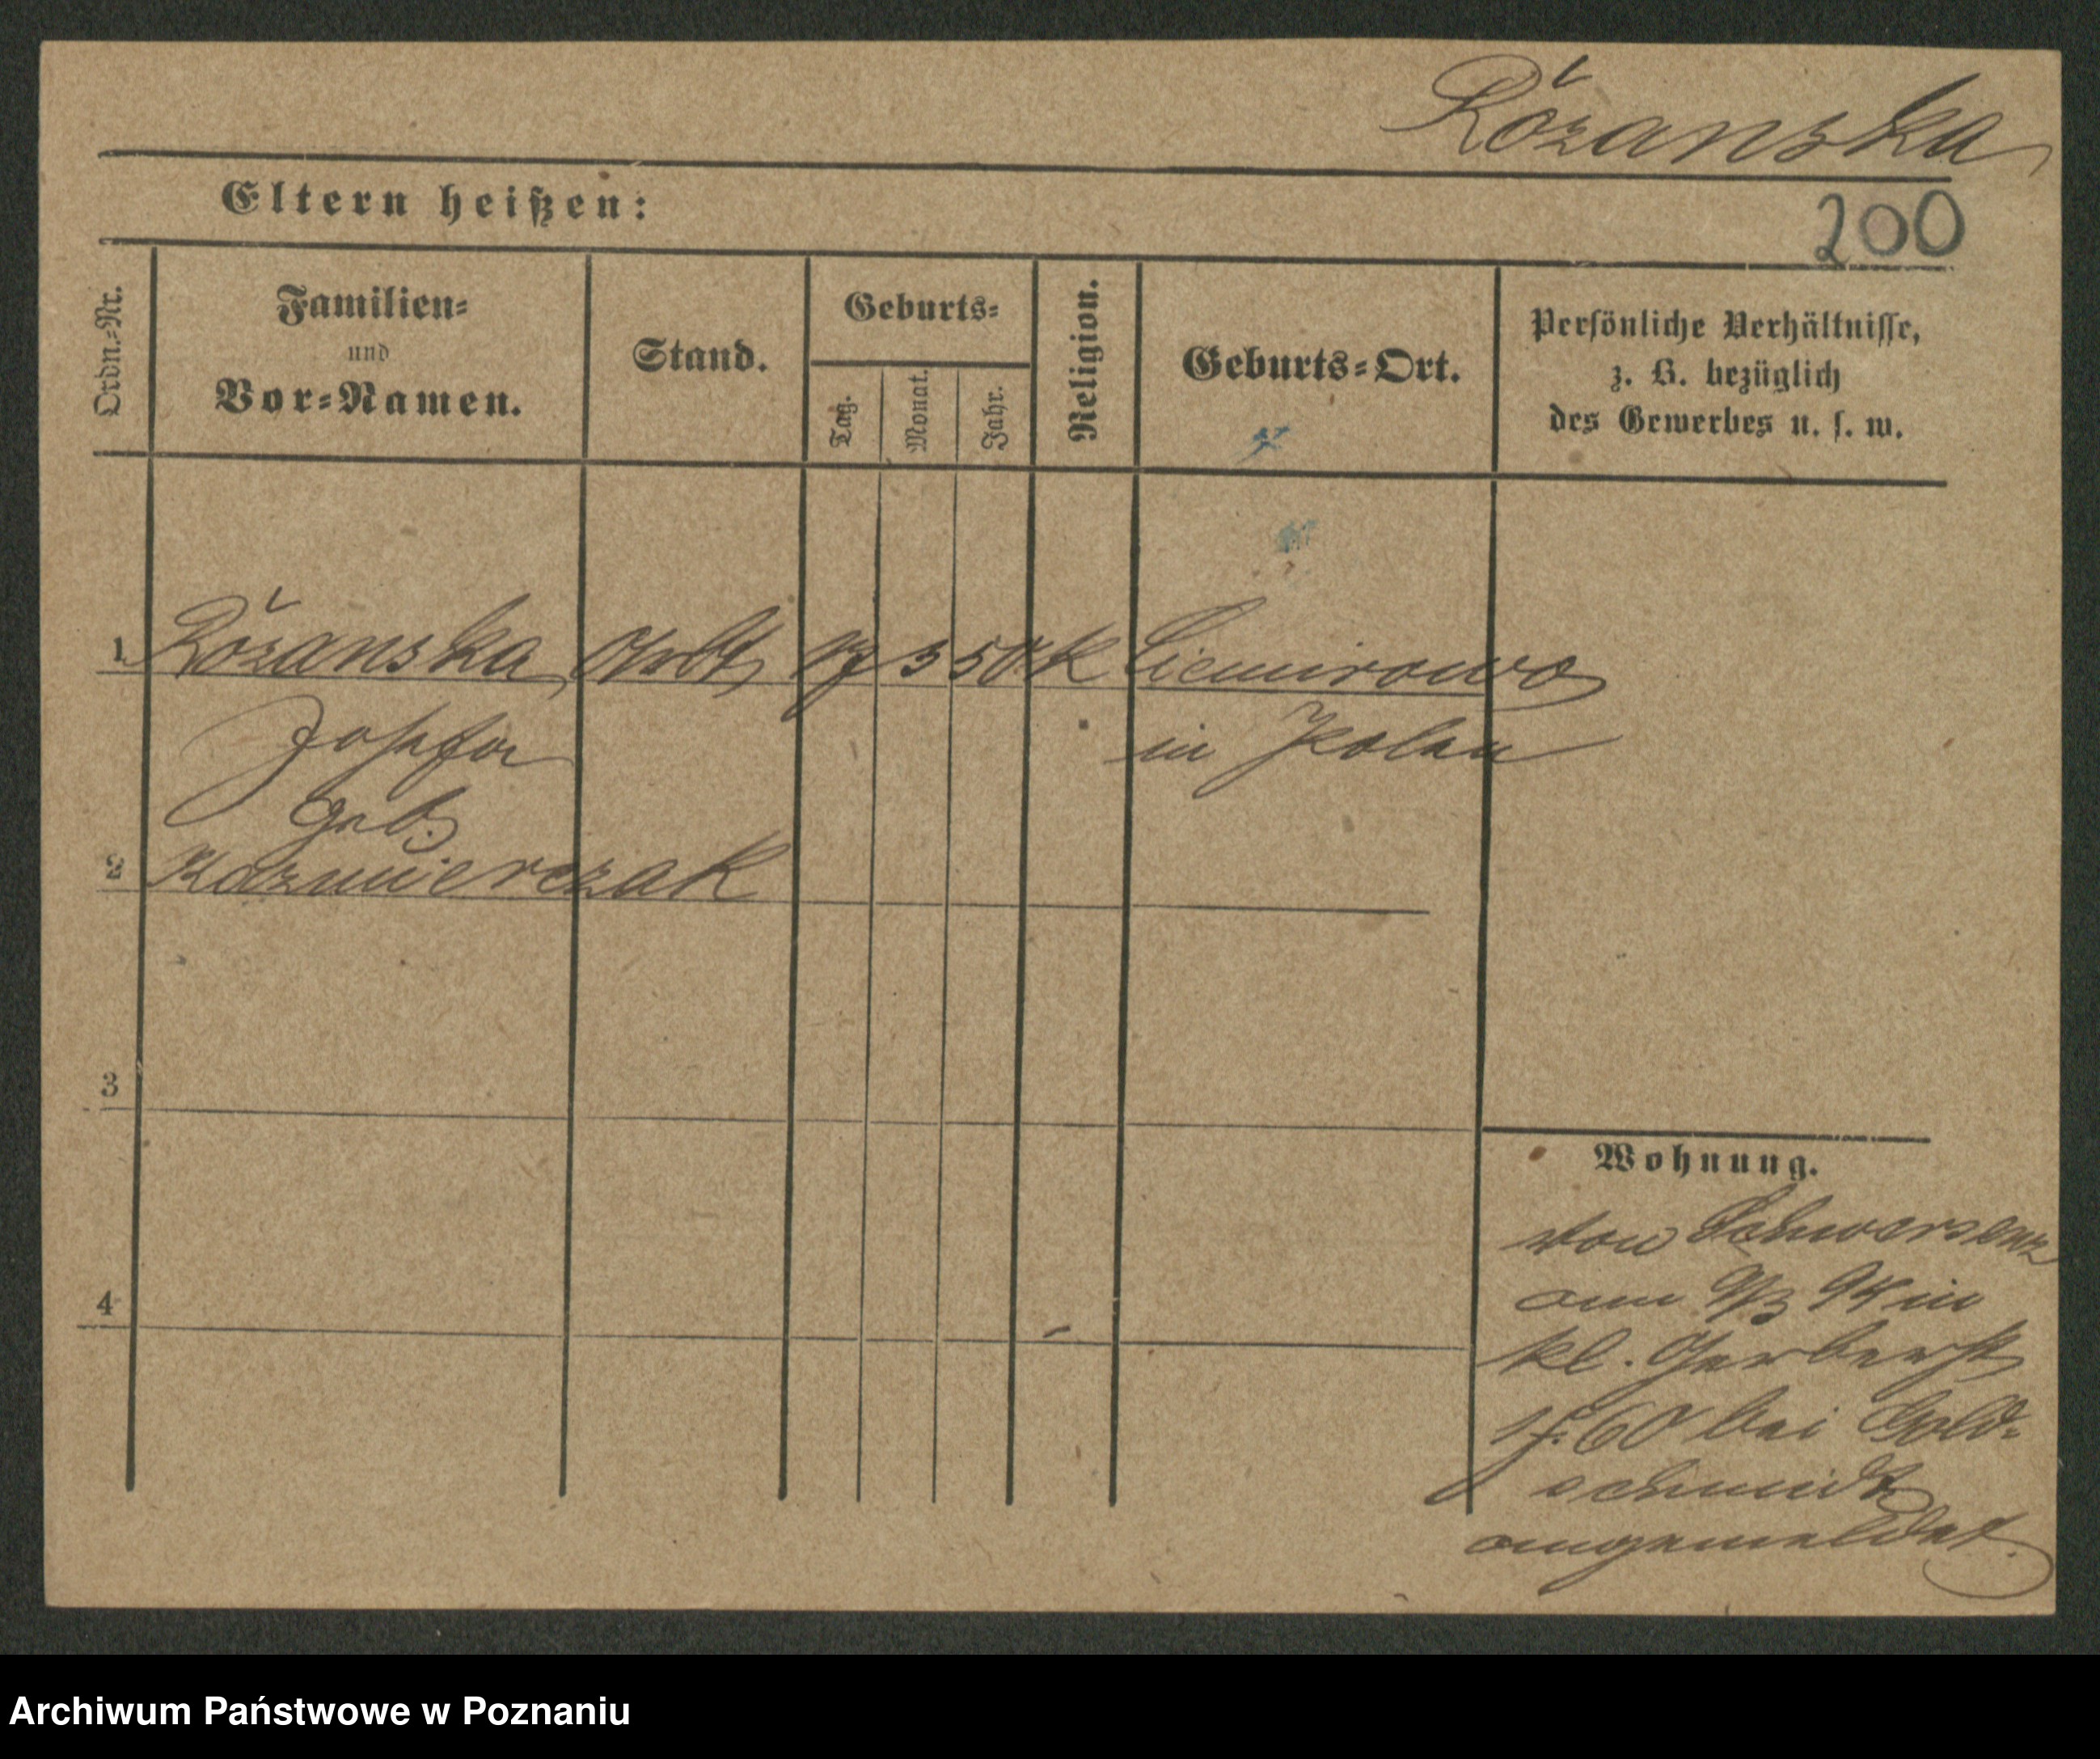 Rózanska
Eltern heißen:
200
Ordn.=Nr.
Familien=
und
Vor=Namen.
Stand.
Geburts=
Tag.
Monat.
Jahr.
Religion.
Geburts=Ort.
Persönliche Verhältnisse,
z. B. bezüglich
des Gewerbes u. s. w.
1 Rózanska 3 50 K
Josefa in
geb.
2 Kazmierczak
3
4
Wohnung.
von Schwersenz
am 9/3 94 in
kl. Gerberst
60 bei Gold-
schmidt
angemeldet
Archiwum Państwowe w Poznaniu